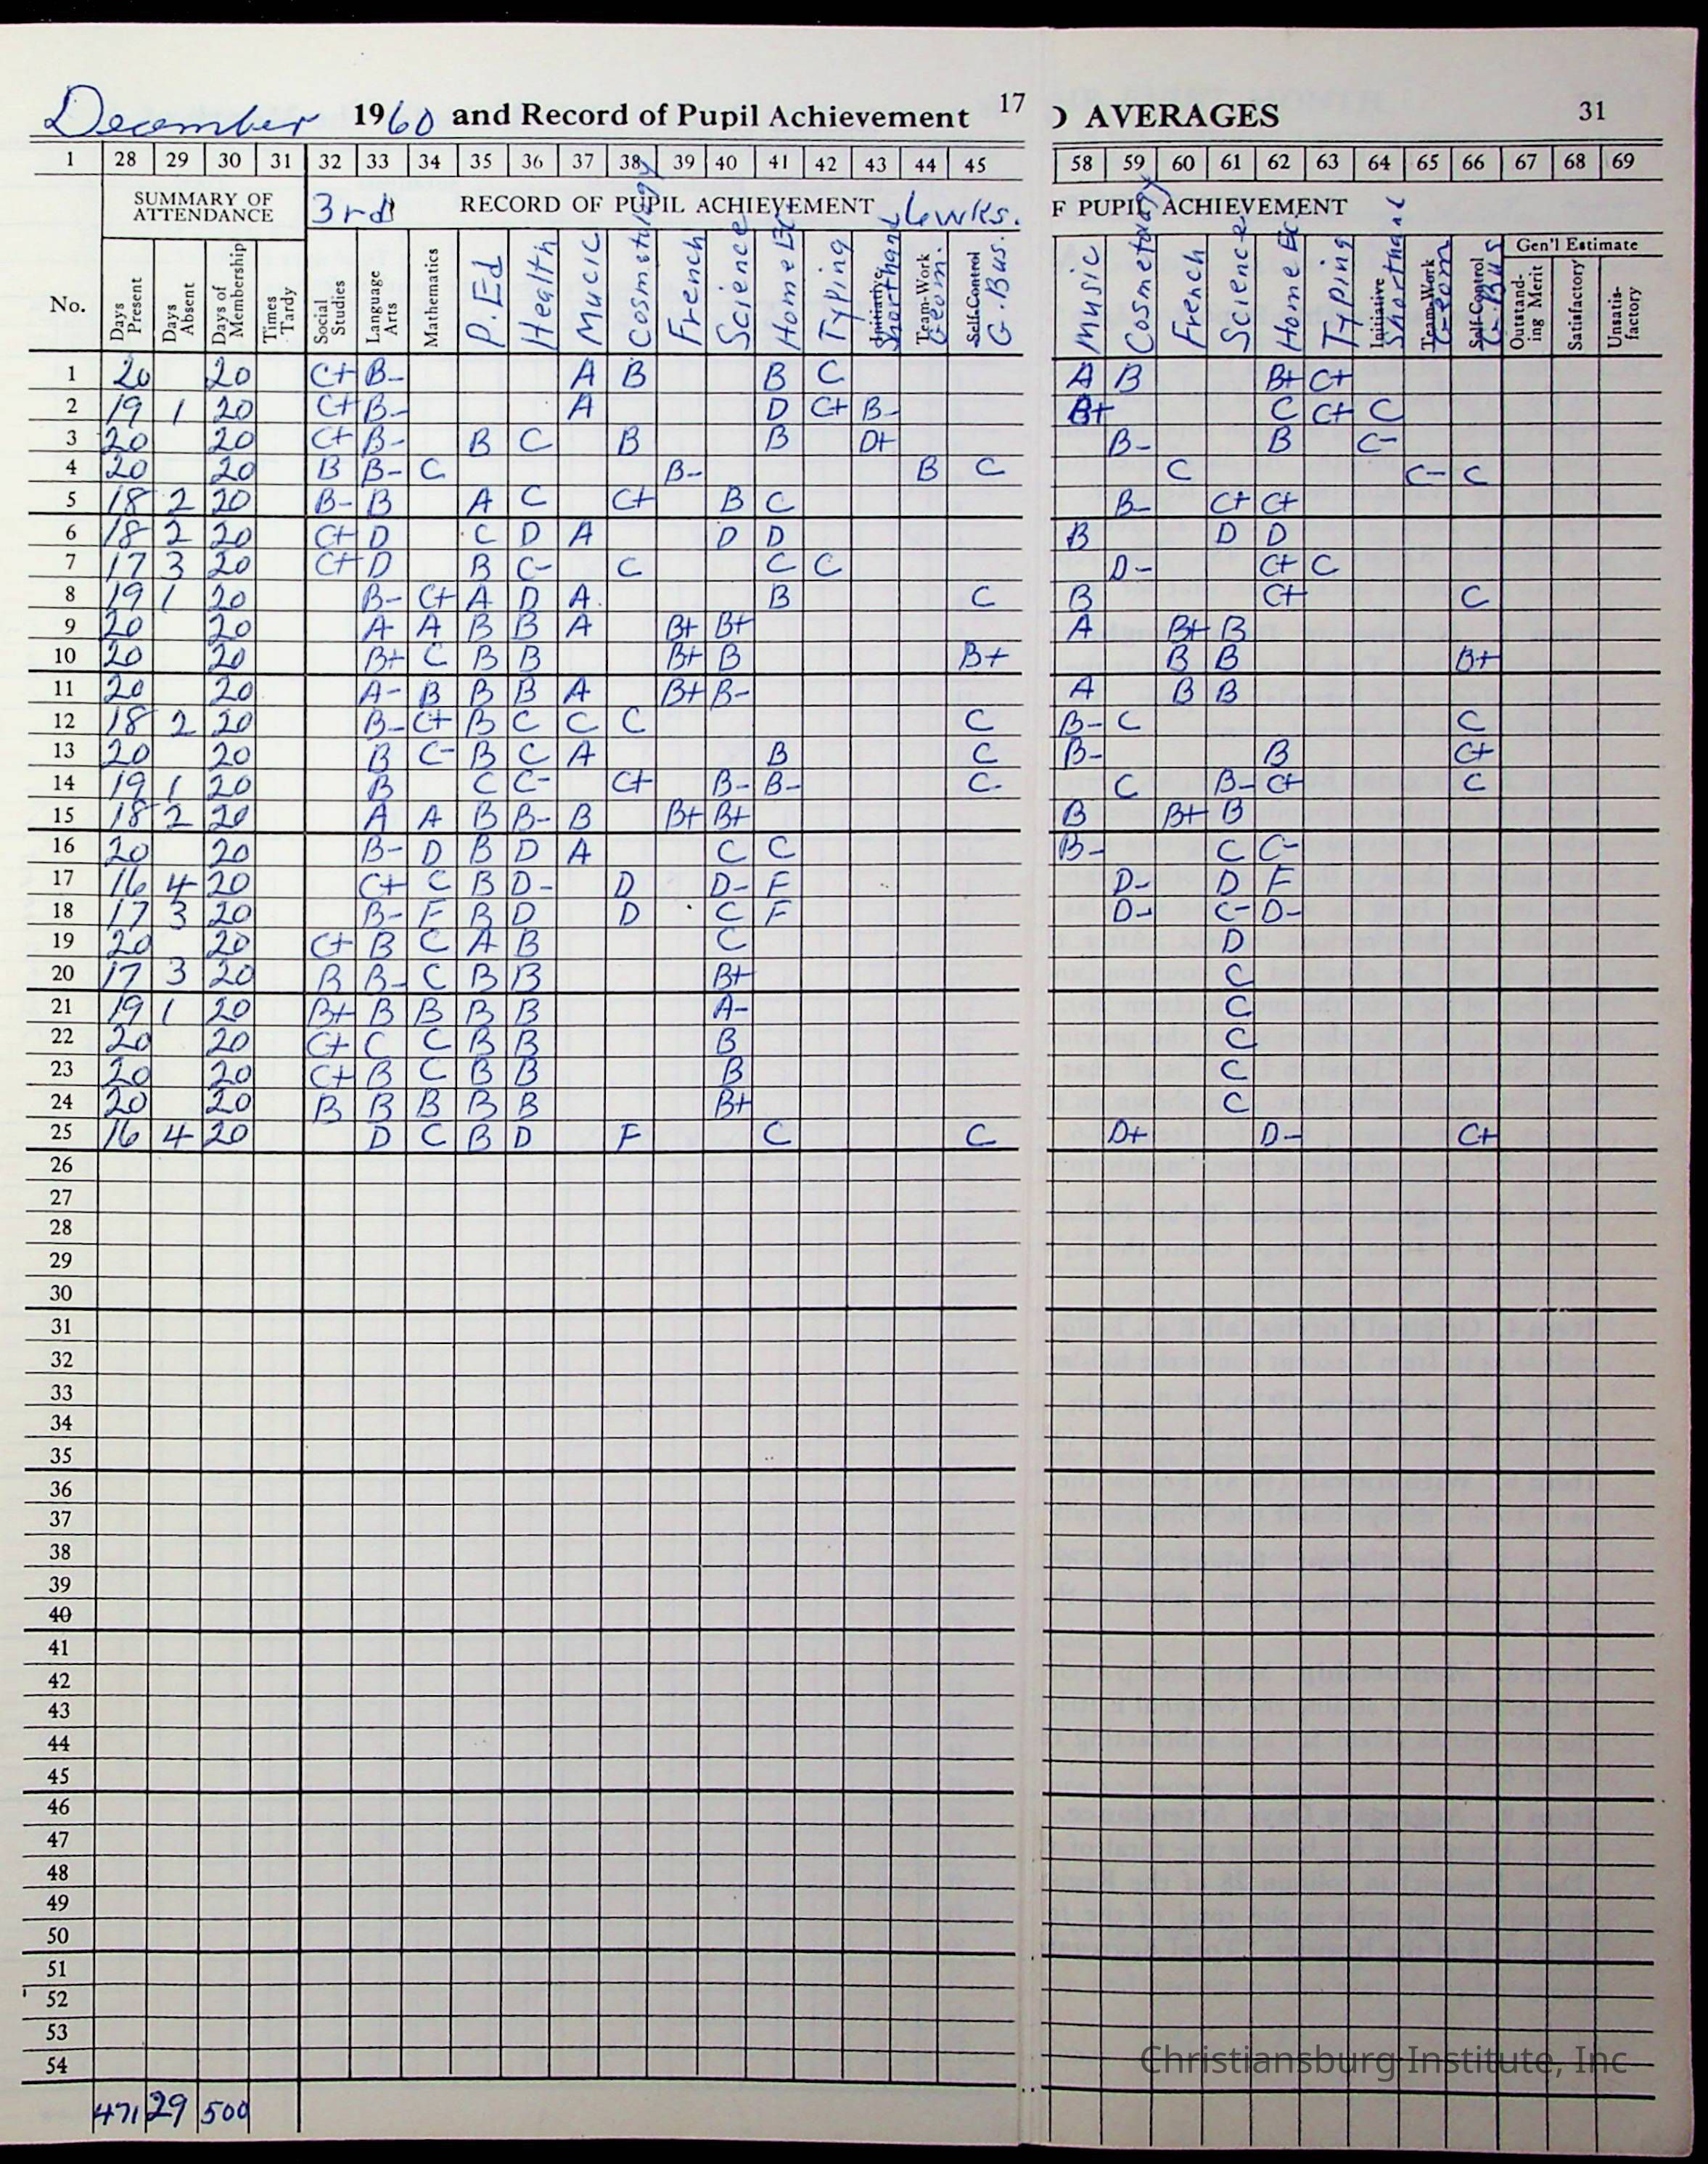 December 1960 and Record of Pupil Achievement 17
) AVERAGES 31
1 28 29 30 31 32 33 34 35 36 37 38 39 40 41 42 43 44 45 58 59 60 61 62 63 64 65 66 67 68 69
SUMMARY OF ATTENDANCE 3rd RECORD OF PUPIL ACHIEVEMENT 6wks. F PUPIL ACHIEVEMENT
Gen'l Estimate
No. Days Present Days Absent Days of Membership Times Tardy Social Studies Language Arts Mathematics P.Ed Health Mucic Cosmetology French Science Home Ec. Typing Initiative Shorthand Team-Work Geom. Self-Control G. Bus. Music Cosmetology French Science Home Ec. Typing Initiative Shorthand Team-Work Geom Self-Control G. Bus Outstanding Merit Satisfactory Unsatisfactory
1 20 20 C+ B- A B B C A B B+ C+
2 19 1 20 C+ B- A D C+ B- B+ C C+ C
3 20 20 C+ B- B C B B D+ B- B C-
4 20 20 B B- C B- B C C C- C
5 18 2 20 B- B A C C+ B C B- C+ C+
6 18 2 20 C+ D C D A D D B D D
7 17 3 20 C+ D B C- C C C D- C+ C
8 19 1 20 B- C+ A D A B C B C+ C
9 20 20 A A B B A B+ B+ A B+ B
10 20 20 B+ C B B B+ B B+ B B B+
11 20 20 A- B B B A B+ B- A B B
12 18 2 20 B- C+ B C C C C B- C C
13 20 20 B C- B C A B C B- B C+
14 19 1 20 B C C- C+ B- B- C C B- C+ C
15 18 2 20 A A B B- B B+ B+ B B+ B
16 20 20 B- D B D A C C B- C C-
17 16 4 20 C+ C B D- D D- F D- D F
18 17 3 20 B- F B D D C F D- C- D-
19 20 20 C+ B C A B C D
20 17 3 20 B B- C B B B+ C
21 19 1 20 B+ B B B B A- C
22 20 20 C+ C C B B B C
23 20 20 C+ B C B B B C
24 20 20 B B B B B B+ C
25 16 4 20 D C B D F C C D+ D- C+
26
27
28
29
30
31
32
33
34
35
36
37
38
39
40
41
42
43
44
45
46
47
48
49
50
51
52
53
54
471 29 500
Christiansburg Institute, Inc